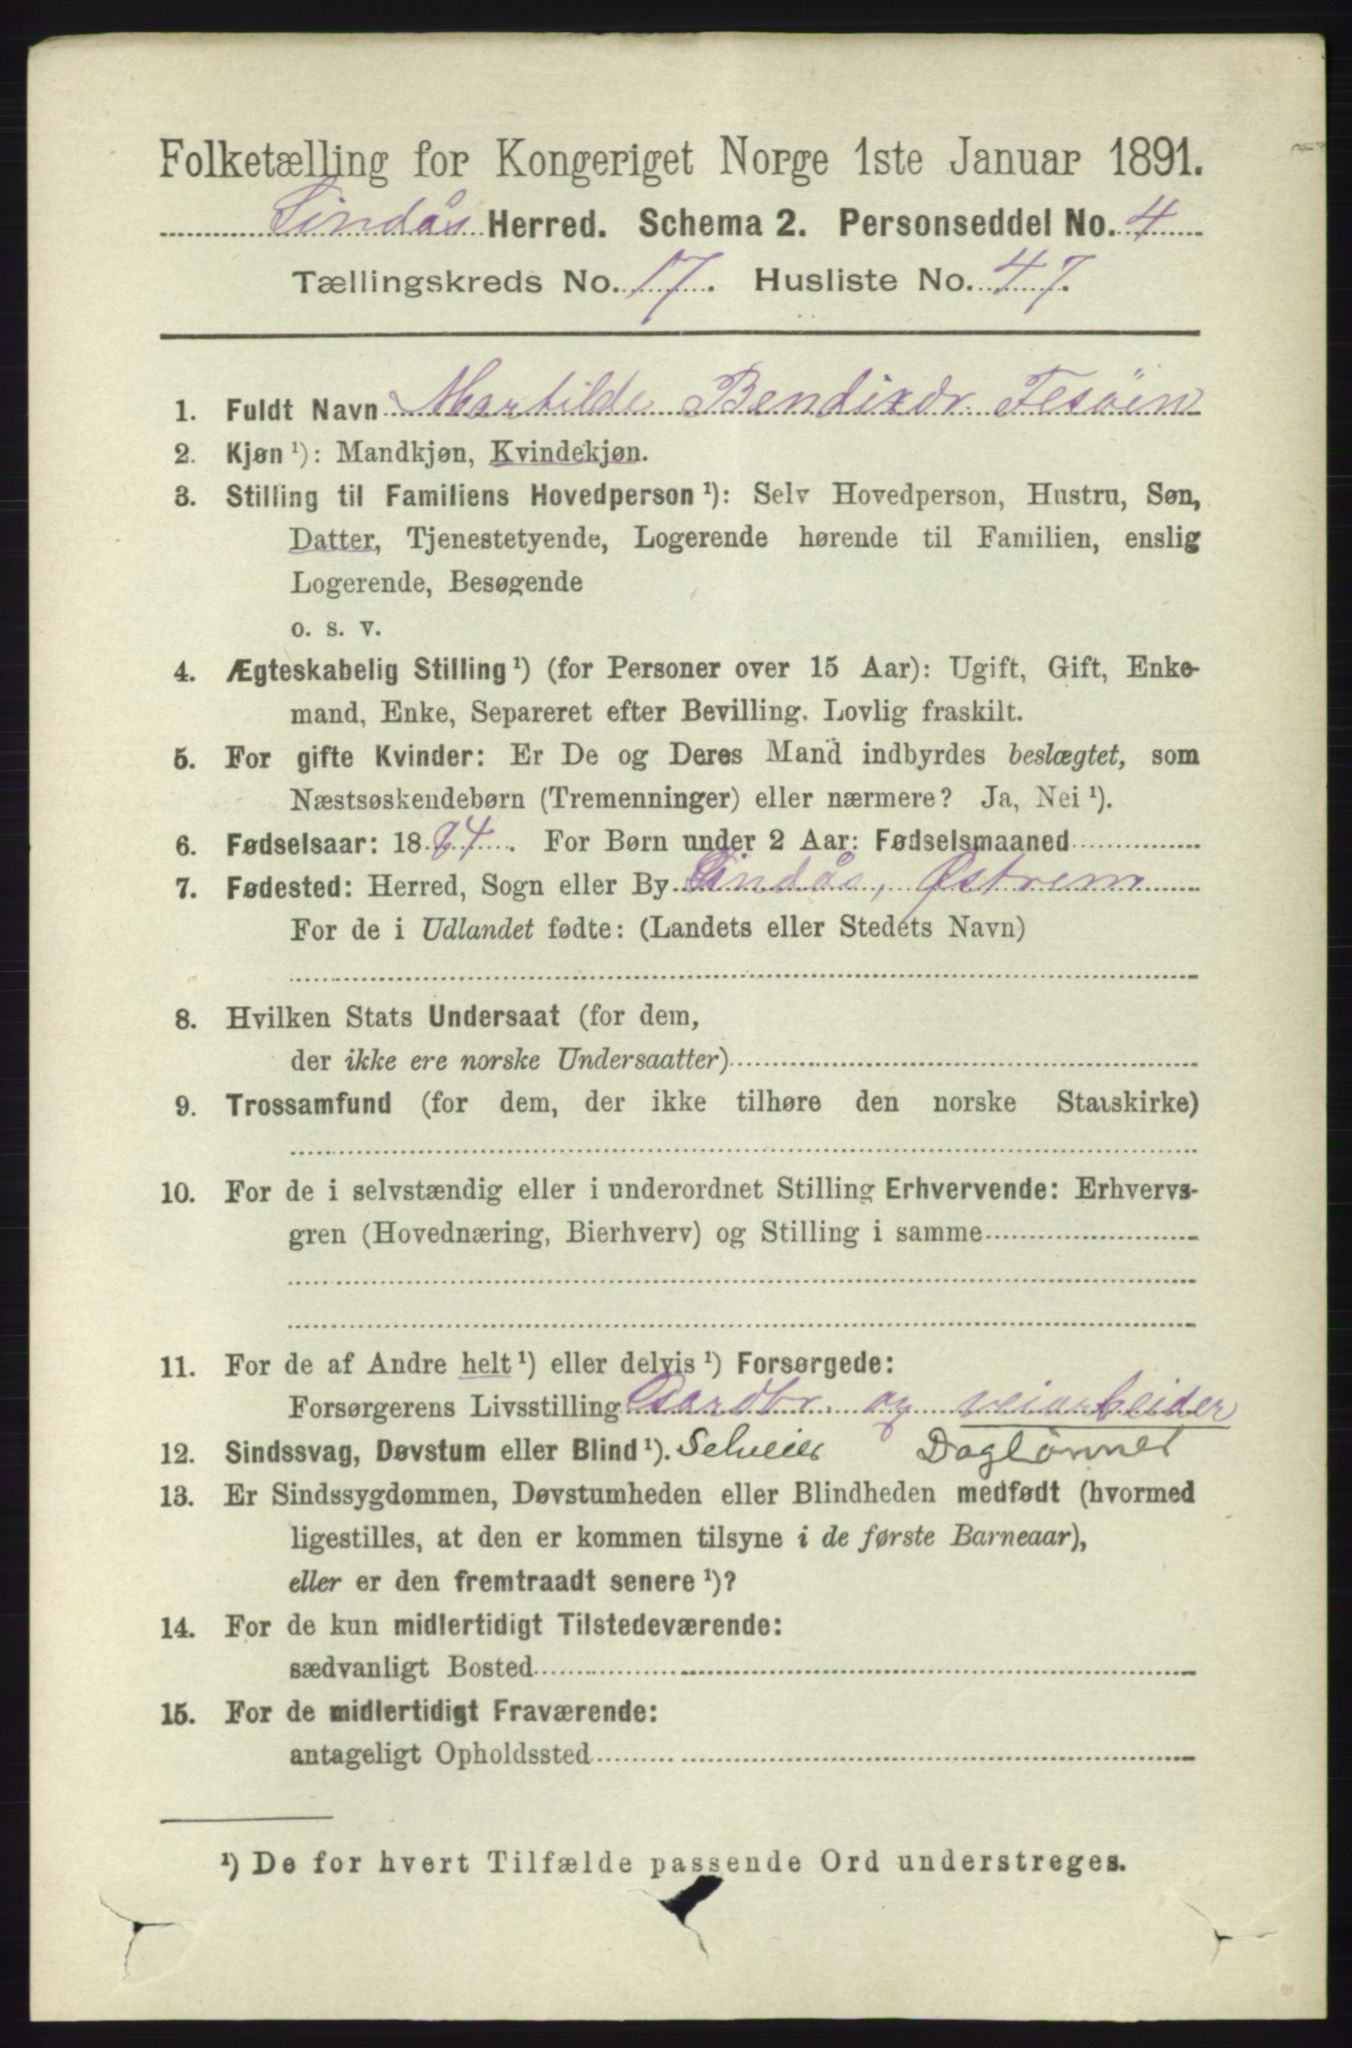 Folketælling for Kongeriget Norge 1ste Januar 1891.
Lindås Herred. Schema 2. Personseddel No. 4
Tællingskreds No. 17. Husliste No. 47.
1. Fuldt Navn Martilde Bendixdr. Fesöien
2. Kjøn ¹): Mandkjøn, Kvindekjøn.
3. Stilling til Familiens Hovedperson ¹): Selv Hovedperson, Hustru, Søn,
Datter, Tjenestetyende, Logerende hørende til Familien, enslig
Logerende, Besøgende
o. s. v.
4. Ægteskabelig Stilling ¹) (for Personer over 15 Aar): Ugift, Gift, Enke-
mand, Enke, Separeret efter Bevilling. Lovlig fraskilt.
5. For gifte Kvinder: Er De og Deres Mand indbyrdes beslægtet, som
Næstsøskendebørn (Tremenninger) eller nærmere? Ja, Nei ¹).
6. Fødselsaar: 1884. For Børn under 2 Aar: Fødselsmaaned
7. Fødested: Herred, Sogn eller By Lindås, Østrem
For de i Udlandet fødte: (Landets eller Stedets Navn)
8. Hvilken Stats Undersaat (for dem,
der ikke ere norske Undersaatter)
9. Trossamfund (for dem, der ikke tilhøre den norske Statskirke)
10. For de i selvstændig eller i underordnet Stilling Erhvervende: Erhvervs-
gren (Hovednæring, Bierhverv) og Stilling i samme
11. For de af Andre helt ¹) eller delvis ¹) Forsørgede:
Forsørgerens Livsstilling Gardbr. og veiarbeider
12. Sindssvag, Døvstum eller Blind ¹). Selveier Daglønner
13. Er Sindssygdommen, Døvstumheden eller Blindheden medfødt (hvormed
ligestilles, at den er kommen tilsyne i de første Barneaar),
eller er den fremtraadt senere ¹)?
14. For de kun midlertidigt Tilstedeværende:
sædvanligt Bosted
15. For de midlertidigt Fraværende:
antageligt Opholdssted
¹) De for hvert Tilfælde passende Ord understreges.